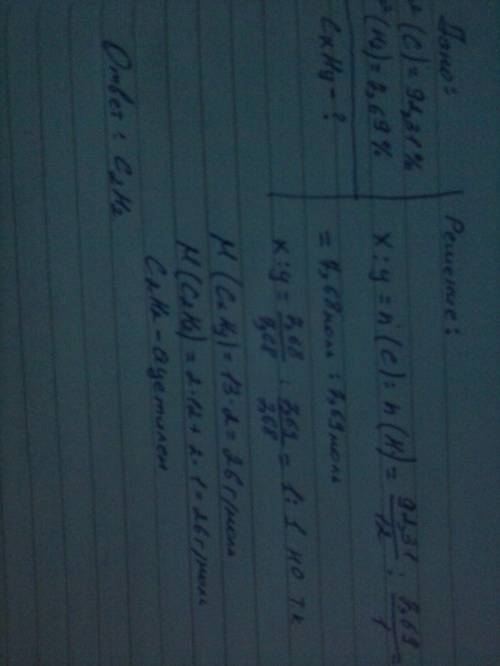 Дано:
ω(C)=92,31%
ω(H)=7,69%
CxHy-?
Решение:
x:y=n(C):n(H)=92,31/12:7,69/1=
=7,68моль:7,69моль
x:y=7,68/7,68:7,69/7,68=1:1 но т.к
M(CxHy)=13·2=26г/моль
M(C2H2)=2·12+2·1=26г/моль
C2H2-ацетилен
Ответ: C2H2